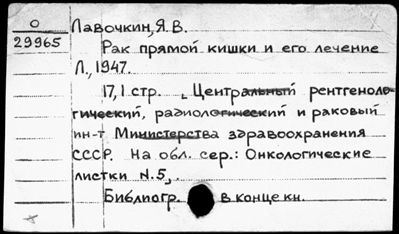 О Лавочкин, Я.В.
29965
Рак прямой кишки и его лечение
Л., 1947.
17,1 стр. „Центральный рентгеноло-
гический, радиологический и раковый
ин-т Министерства здравоохранения
СССР. На обл. сер.: Онкологические
листки N.5,.
Библиогр. в конце кн.